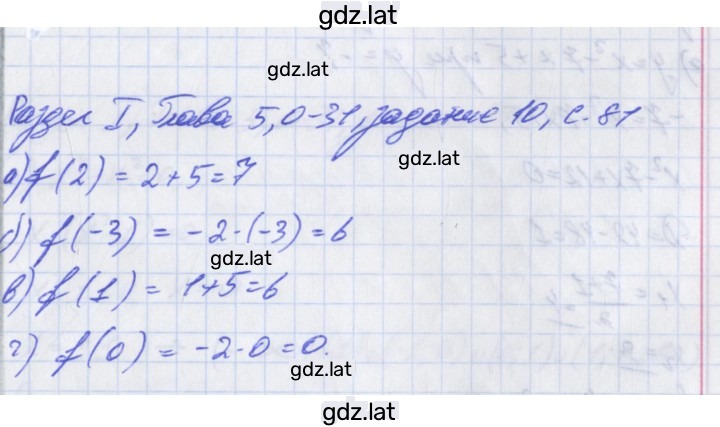 gdz.lat
gdz.lat
Раздел I, Глава 5, О-31, задание 10, с. 81
gdz.lat
а) f(2) = 2+5=7
б) f(-3) = -2·(-3) = 6
gdz.lat
в) f(1) = 1+5=6
г) f(0) = -2·0=0.
gdz.lat
gdz.lat